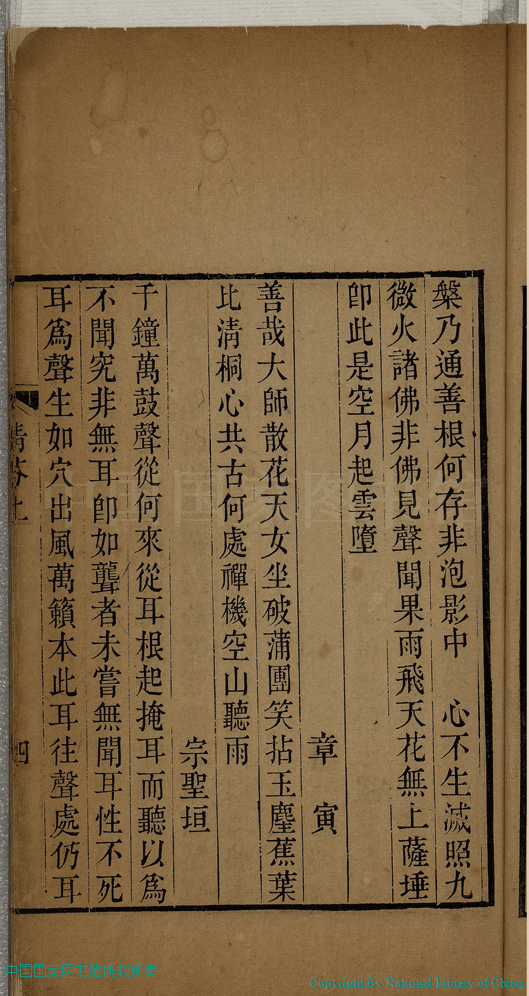 槃乃通善根何存非泡影中　心不生滅照九
微火諸佛非佛見聲聞果雨飛天花無上薩埵
卽此是空月起雲墮
章　寅
善哉大師散花天女坐破蒲團笑拈玉麈蕉葉
比清桐心共古何處禪機空山聽雨
宗聖垣
千鐘萬鼓聲從何來從耳根起掩耳而聽以爲
不聞究非無耳卽如聾者未嘗無聞耳性不死
耳爲聲生如穴出風萬籟本此耳往聲處仍耳
清芬上
四
Copyright By National Library of China